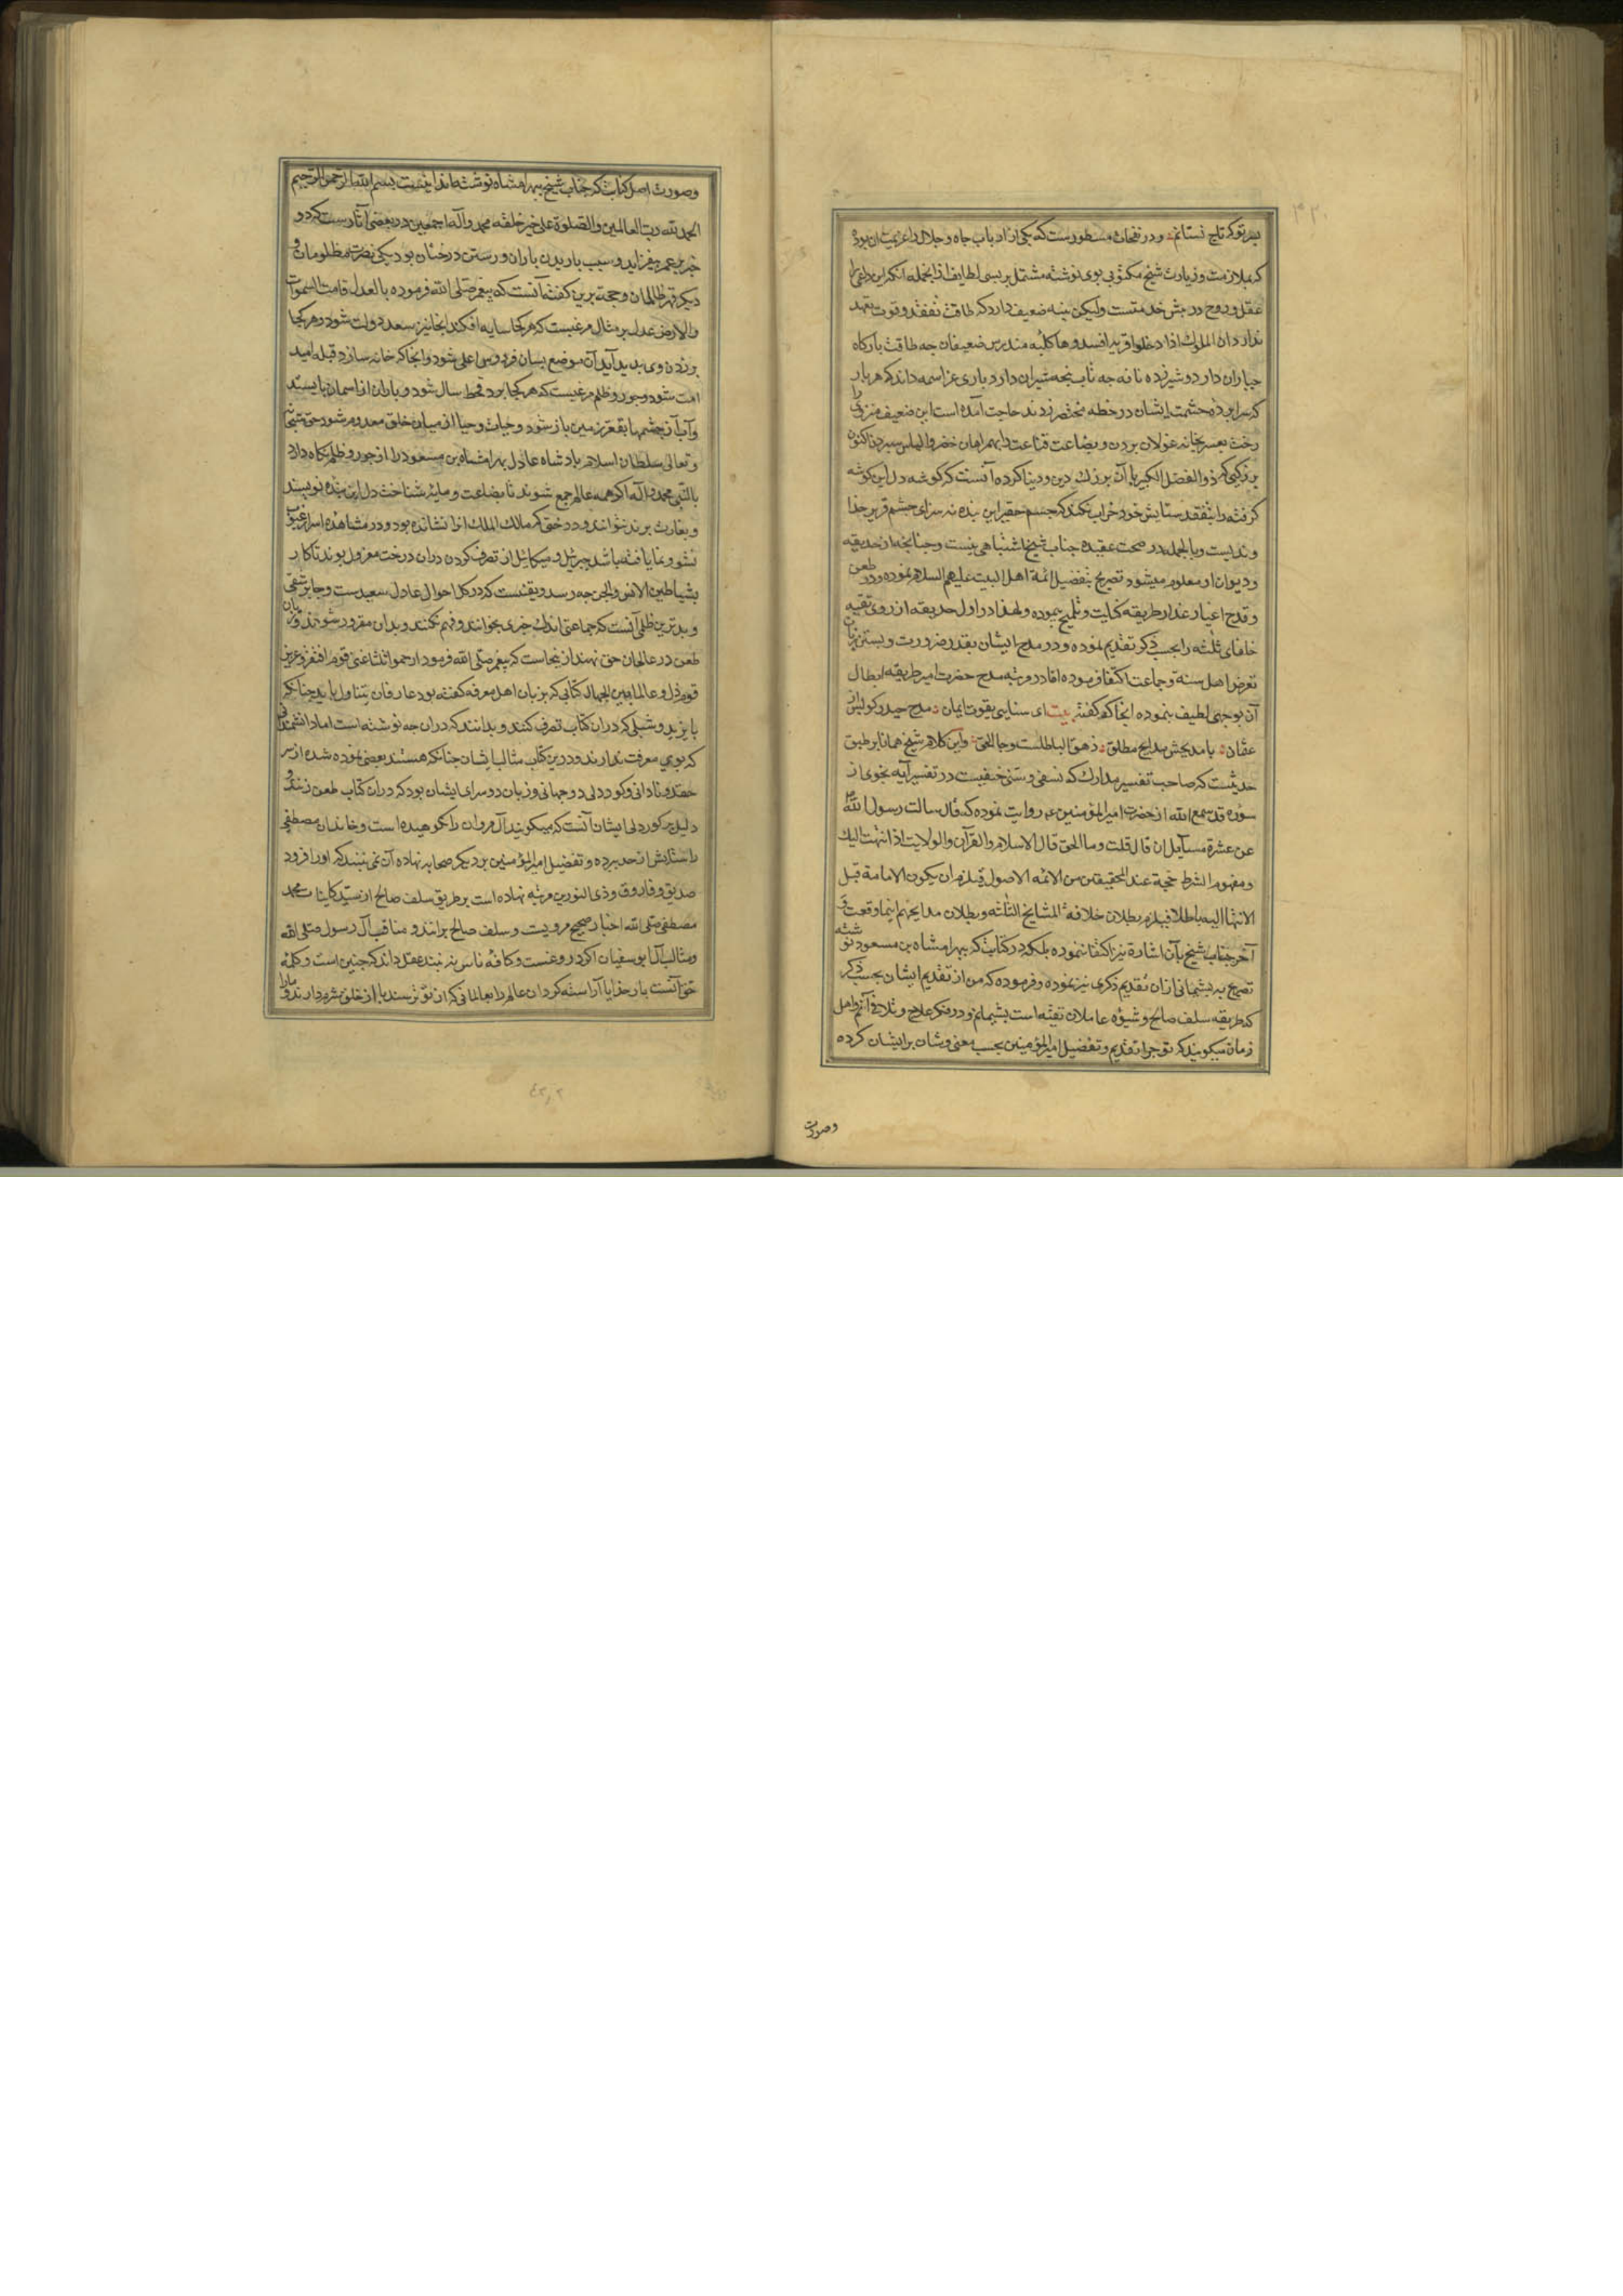 بسر تو که تاج نستانم ؞ و در نفحات مسطورست که یکی از ارباب جاه و جلال داعزیمت آن بوده
که بملازمت و زیارت شیخ مکتوبی بوی نوشته مشتمل بر بسی لطایف از انجمله آنکه این داعی را
عقل و روح در پیش خدمتست ولیکن بنیه ضعیف دارد که طاقت تفقد و قوت تعهد
ندارد ان الملوک اذا دخلوا قریة افسدوها کلبه مندرس ضعیفان چه طاقت بارگاه
جباران دارد و شیرزده ناقه چه تاب پنجه شیران دارد باری عز اسمه داند که هر بار
که سراپرده حشمت ایشان در خطه مختصر زدند حاجت آمده است این ضعیف منزوی را
رخت بعسرتخانه غولان بردن و بضاعت قناعت را بهمراهان خضر و الیاس سپردن اکنون
بزرگیی که ذو الفضل الکبیر با آن بزرگ دین و دنیا کرده آنست که گوشه دل این گوشه
گرفته را بتفقد ستایش خود خراب نکند که جسم حقیر این بنده نه سزای چشم قریر خدا
وندیست و بالجمله در صحت عقیده جناب شیخ اشتباهی نیست و چنانچه از حدیقه
و دیوان او معلوم میشود تصریح بتفضیل ائمة اهل البیت علیهم السلام نموده و در طعن
و قدح اعیار غدار طریقه کنایت و تلمیح پیموده ولهذا در اول حدیقه از روی تقیه
خلفای ثلثه را بحسب ذکر تقدیم نموده و در مدح ایشان بقدر ضرورت و بستن زبان
تعرض اهل سنة و جماعت اکتفا فرموده اما در مرتبه مدح حضرت امیر طریقه ابطال
آن بوجهی لطیف بنموده انجا که گفته بیت ای سنایی بقوت ایمان ؞ مدح حیدر گو پس از
عثمان ؞ با مدیحش مدایح مطلق ؞ زهق الباطلست و جا الحق ؞ و این کلام شیخ همانا بر طبق
حدیثست که صاحب تفسیر مدارک که نسفی و سنی حنفیست در تفسیر آیه نجوی از
سوره قد سمع الله از حضرت امیر المؤمنین ع روایت نموده که قال سالت رسول الله ص
عن عشرة مسآیل ان قال قلت و ما الحق قال الاسلام و القرآن و الولایت اذا انتهت الیک
و مفهوم الشرط حجة عند المحققین من الائمه الاصول فیلزم ان یکون الامامة قبل
الانتها الیه باطلا فیلزم بطلان خلافة المشایخ الثلثه و بطلان مدایحهم انما وقعت و
آخر جناب شیخ بآن اشارة نیز اکتفا ننموده بلکه در کتابت که بهرامشاه بن مسعود نوشته
تصریح به پشیمانی از ان تقدیم ذکری نیز نموده و فرموده که من از تقدیم ایشان بحسب ذکر
که طریقه سلف صالح و شیوه عاملان تقیه است پشیمانم و در فکر علاج و تلافی آنم و اهل
زمانه میگویند که تو چرا تقدیم و تفضیل امیر المؤمنین بحسب معنی و شان بر ایشان کرده
وصورت
وصورت اصل کتابت که جناب شیخ ببهرامشاه نوشته‌اند اینست بسم الله الرحمن الرحیم
الحمد لله رب العالمین والصلوة علی خیر خلقه محمد وآله اجمعین در بعضی آثارست که دو
چیز بر عمر بیفزاید و سبب باریدن باران و رستن درختان بود یکی نصرت مظلومان و
دیگر قهر ظالمان و حجة برین گفته آنست که پیغمبر صلی الله فرموده بالعدل قامت السموات
والارض عدل بر مثال مرغیست که هر کجا سایه افکند انجا نیز سعد دولت شود و هر کجا
پر زدن وی بدید آید آن موضع بسان فردوس اعلی شود و انجا که خانه سازد قبله امید
امت شود و جور و ظلم مرغیست که هر کجا پرد قحط سال شود و باران از اسمان بایستد
و آب از چشمها بقعر زمین باز شود و حیات و حیا از میان خلق معدوم شود حق سبحانه
و تعالی سلطان اسلام پادشاه عادل بهرامشاه بن مسعود را از جور و ظلم نگاه دارد
بالنبی محمد و آله اگر همه عالم جمع شوند تا بضاعت و مایه شناخت دل این بنده نویسند
و بغارت برند نتوانند و درختی که مالک الملک انرا نشانده بود و در مشاهده اسرار غیوب
نشو و نما یافته باشد جبرئیل و میکائیل از تصرف کردن در ان درخت معزول بوند تا کار
بشیاطین الانس والجن چه رسد و یقینست که در کل احوال عادل سعیدست و جابر شقی
و بدترین ظلمی آنست که جماعتی اندک چیزی بخوانند و فهم نکنند و بدان مغرور شوند و زبان
طعن در عالمان حق نهند از ینجاست که پیغمبر صلی الله فرمود ارحموا ثلثا غنی قوم افتقر و عزیز
قوم ذل و عالما بین الجهال کتابی که بزبان اهل معرفه گفته بود عارفان بتناول باید چنانکه
بایزید و شبلی که در ان کتاب تصرف کنند و بدانند که در ان چه نوشته است اما دانشمندی
که بوی معرفت ندارند و درین کتاب مثالب ایشان چنانکه هستند بعضی نموده شده از سر
حقد و نادانی و کوردلی دو جهانی و زیان دو سرای ایشان بود که در ان کتاب طعن زنند و
دلیل بر کوردلی ایشان آنست که میگویند آل مروان را نکوهیده است و خاندان مصطفی
را ستایش از حد برده و تفضیل امیر المؤمنین بر دیگر صحابه نهاده آن نمی بینند که او را فرود
صدیق و فاروق و ذی النورین مرتبه نهاده است بر طریق سلف صالح از سید کاینات محمد
مصطفی صلی الله اخبار صحیح مرویست و سلف صالح برانند و مناقب آل رسول صلی الله
و مثالب آل ابو سفیان اگر دروغست و کافه ناس نه بیند عقل داند که چنین است و کلمه
حق آنست بار خدایا آراسته گردان عالم را بعالمانی که از تو ترسند یا از خلق شرم دارند و ما را